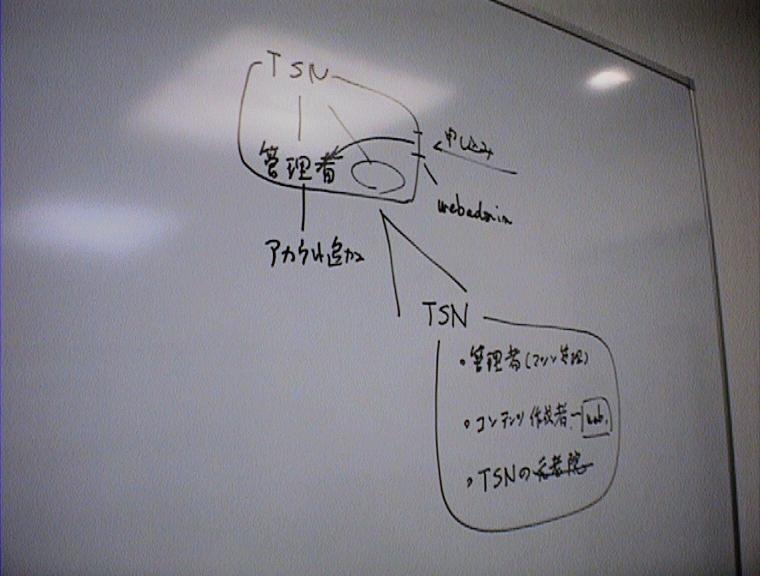 TSN
申し込み
管理者
webadmin
アカウント追加
TSN
・管理者(マシン管理)
・コンテンツ作成者-web.
・TSNの元老院